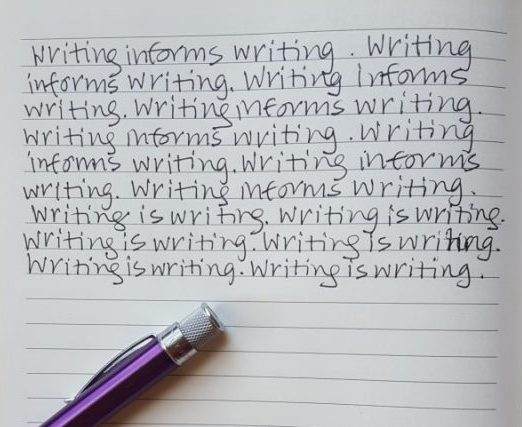 Writing informs writing. Writing
informs writing. Writing informs
writing. Writing informs writing.
Writing informs writing. Writing
informs writing. Writing informs
writing. Writing informs writing.
Writing is writing. Writing is writing.
Writing is writing. Writing is writing.
Writing is writing. Writing is writing.